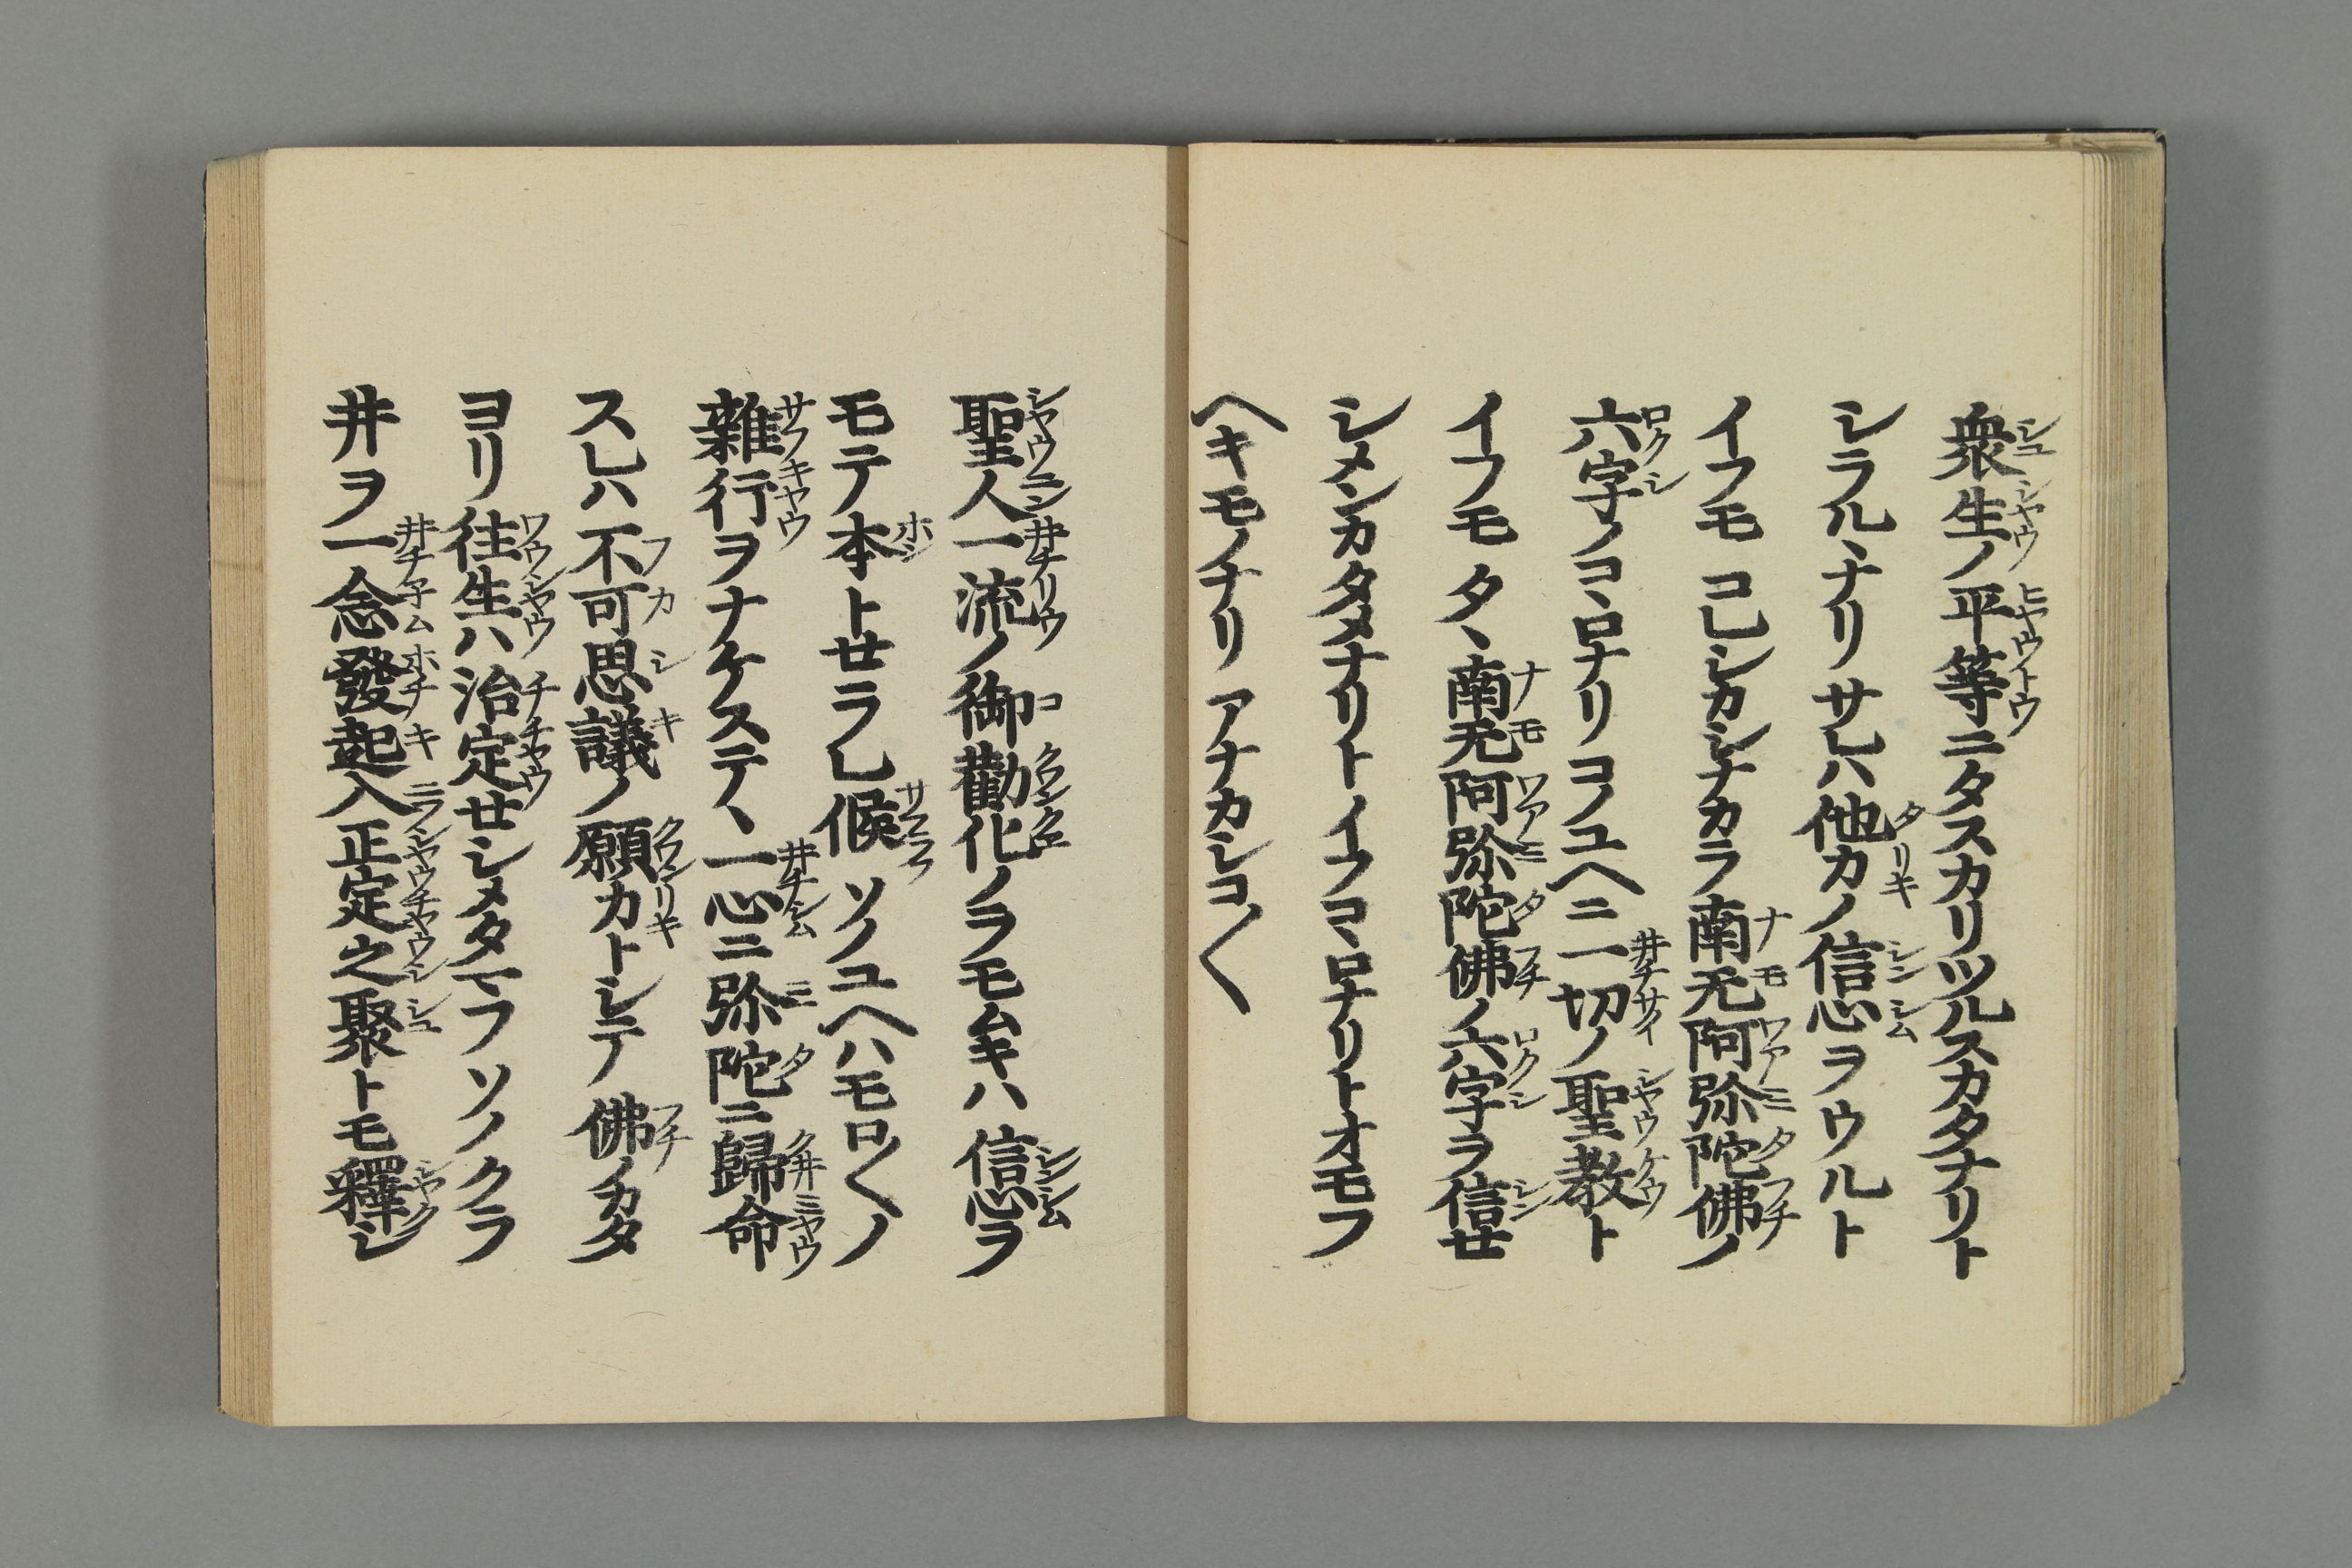 衆生ノ平等ニタスカリツルスカタナリト
シラルヽナリサレハ他力ノ信心ヲウルト
イフモコレシカシナカラ南无阿弥陀佛ノ
六字ノコヽロナリコノユヘニ一切ノ聖教ト
イフモタヽ南无阿弥陀佛ノ六字ヲ信セ
シメンカタメナリトイフコヽロナリトオモフ
ヘキモノナリアナカシコ〱
聖人一流ノ御勸化ノヲモムキハ信心ヲ
モテ本トセラレ候ソノユヘハモロ〱ノ
雜行ヲナケステヽ一心ニ弥陀ニ歸命
スレハ不可思議ノ願力トシテ佛ノカタ
ヨリ往生ハ治定セシメタマフソノクラ
井ヲ一念發起入正定之聚トモ釋シ